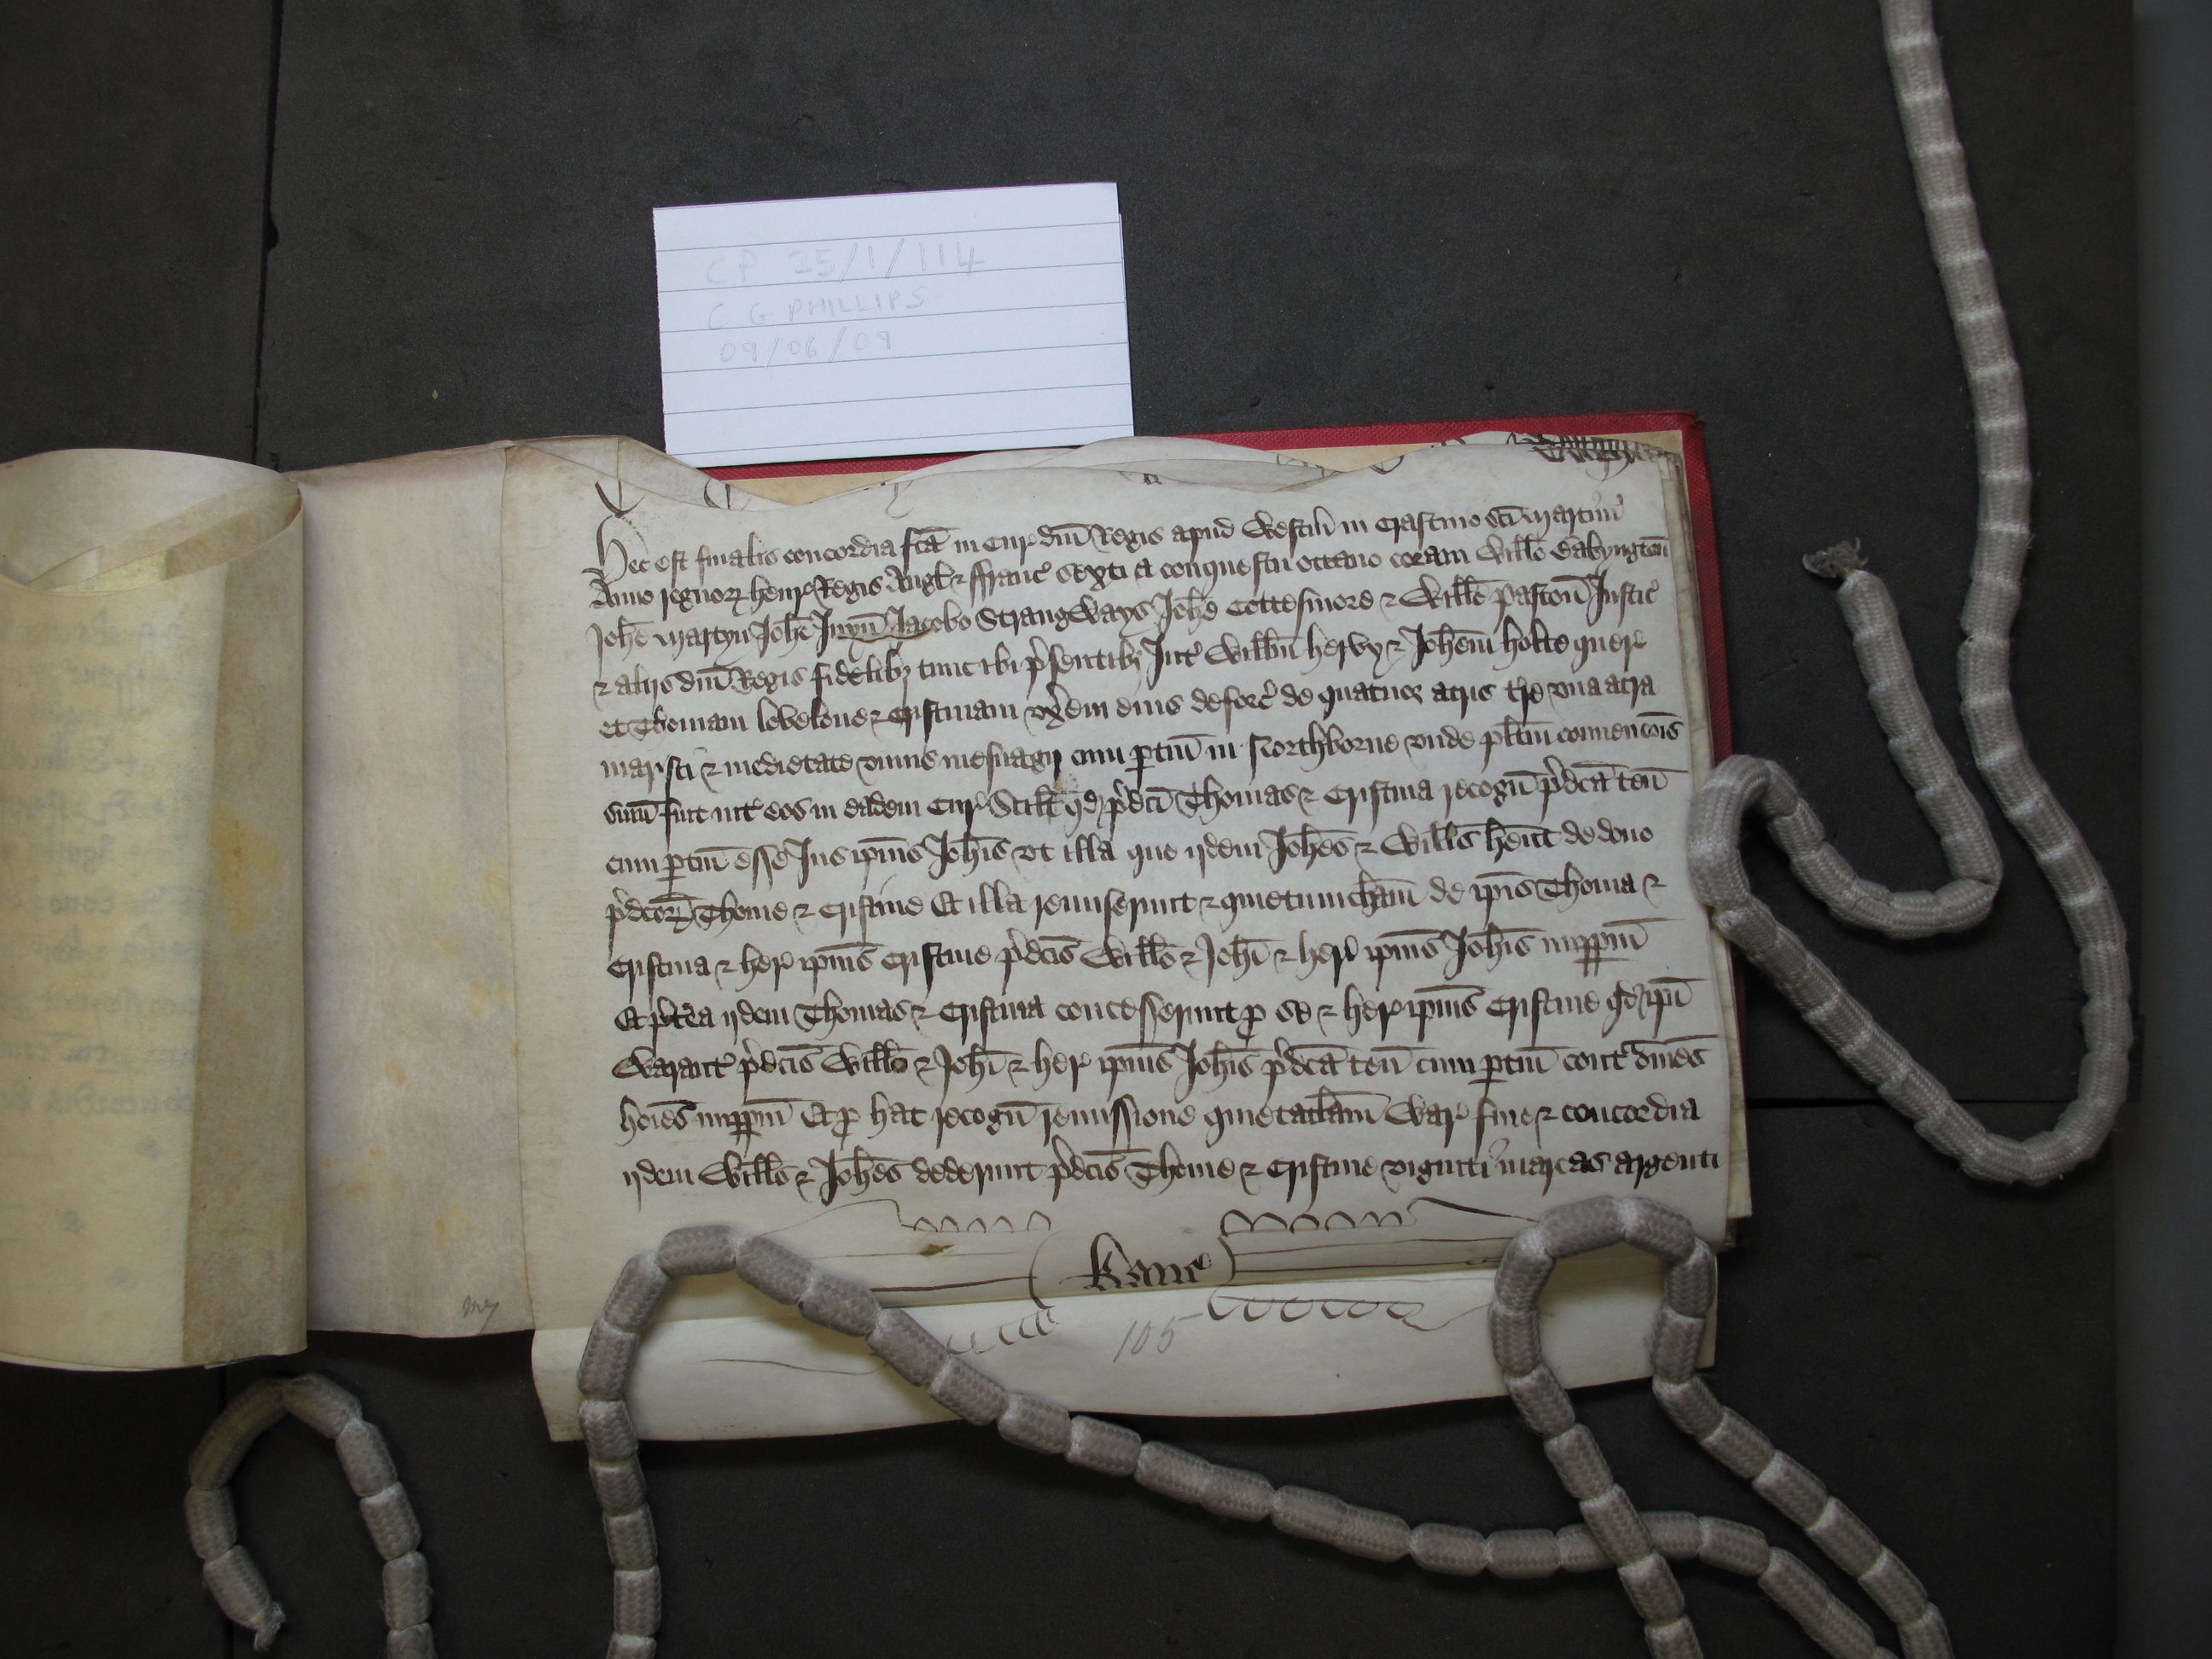 CP 25/1/114
C G PHILLIPS
09/06/09
Hec est finalis concordia fcā in Cur̛ dnī Regis apud Westm̄ in Crastino scī Martini
Anno regnoꝝ Henr̛ Regis Angl̛ ⁊ ffranc̛ Sexti a conquestu octauo coram Will̄o Babyngton̄
Joh̄e Martyn Joh̄e Juyn̄ Jacobo Strangways Joh̄e Cottesmore ⁊ Will̄o Paston̄ Justic̛
⁊ alijs dnī Regis fidelibꝫ tunc ibi p̛sentibꝫ Int̛ Will̄m Hervy ⁊ Joh̄em Holte quer̛
et Thomam ⁊ Cristinam vx̛em eius deforc̛ de quatuor acris t̛re vna acra
marisci ⁊ medietate vnius mesuagij cum ꝑtin̄ in Northborne vnde pl̄itm̄ conuenc̄ois
sum̄ fuit int̛ eos in eadem Cur̛ Scil̄t qd̛ p̛dcī Thomas ⁊ Cristina recogn̄ p̛dcā ten̄
cum ꝑtin̄ esse Jus ip̄ius Joh̄is vt illa que ijdem Joh̄es ⁊ Will̄s hēnt de dono
p̛dcōꝝ Thome ⁊ Cristine Et illa remiserunt ⁊ quietumclam̄ de ip̄is Thoma ⁊
Cristina ⁊ her̛ ip̄ius Cristine p̛dcīs Will̄o ⁊ Joh̄i ⁊ her̛ ip̄ius Joh̄is imꝑꝑm̄
Et p̛t̛ea ijdem Thomas ⁊ Cristina concesserunt ꝓ se ⁊ her̛ ip̄ius Cristine qd̛ ip̄i
Warant̛ p̛dcīs Will̄o ⁊ Joh̄i ⁊ her̛ ip̄ius Joh̄is p̛dcā ten̄ cum ꝑtin̄ cont̛ om̄es
hoīes imꝑꝑm̄ Et ꝓ hac recogn̄ remissione quietaclam̄ War̛ fine ⁊ concordia
ijdem Will̄s ⁊ Joh̄es dederunt p̛dcīs Thome ⁊ Cristine viginti marcas argenti
Kanc̛
105